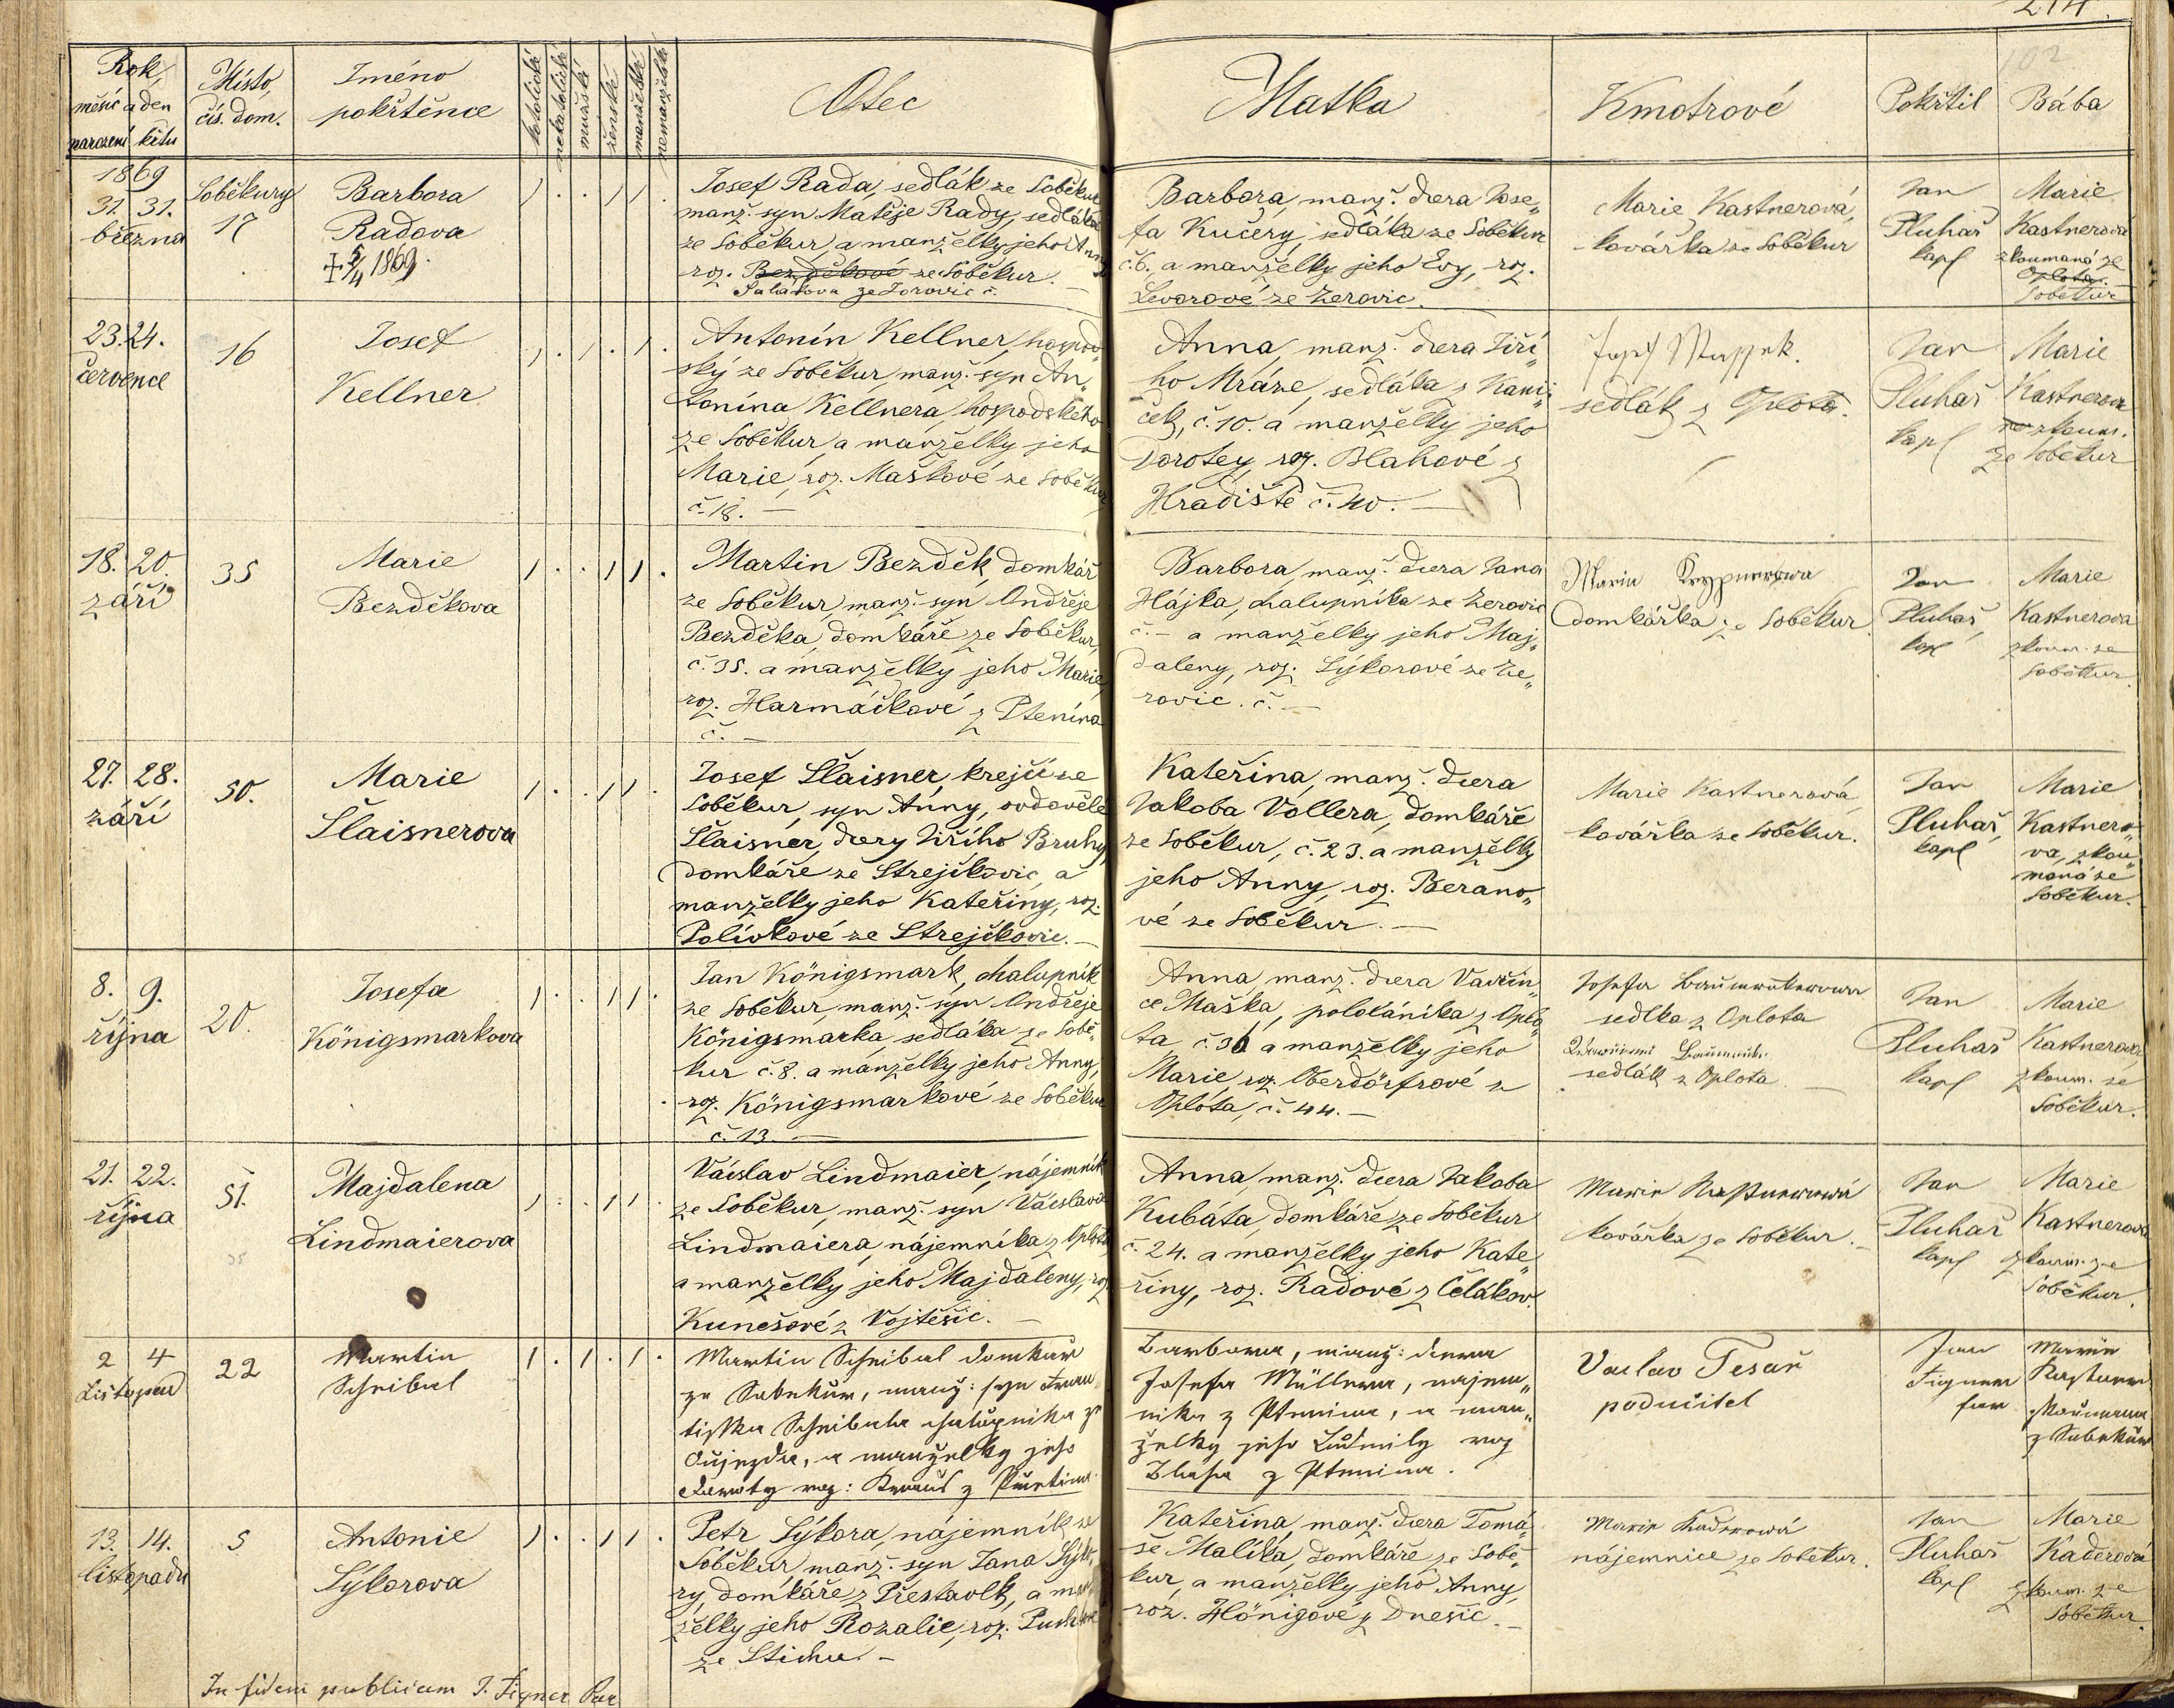 214.
102
Rok,
měsíc a den
narození křtu
Místo,
čís. dom.
Jméno
pokřtěnce
katolické
nekatolické
mužské
ženské
manželské
nemanželské
Otec
Matka
Kmotrové
Pokřtil
Bába
1869
31. 31.
března
Soběkury
17
Barbora
Radova
† 5/4 1869.
Josef Rada, sedlák ze Soběkur
manž. syn Matěje Rady, sedláka
ze Soběkur, a manželky jeho Anny
roz. Bezděkové ze Soběkur.
Salátova ze Žerovic č.
Barbora, manž. dcera Jose„
fa Kučery, sedláka ze Soběkur
č. 6. a manželky jeho Evy, roz.
Levorové ze Žerovic.
Marie Kastnerová,
kovářka ze Soběkur
Jan
Pluhař
kapl
Marie
Kastnerova
zkoumaná ze
Oplota
Soběkur
23. 24.
července
16
Josef
Kellner
Antonín Kellner, hospod„
ský ze Soběkur, manž. syn An„
tonína Kellnera, hospodského
ze Soběkur, a manželky jeho
Marie, roz. Maškové ze Soběkur
č. 18. —
Anna, manž. dcera Jiří„
ho Mráze, sedláka z Kani„
ček, č. 10. a manželky jeho
Dorotey, roz. Blahové z
Hradiště č. 40. —
sedlák z Oplota.
Jan
Pluhař
kapl
Marie
Kastnerova
zkoum.
ze Soběkur
18. 20.
září
35
Marie
Bezděkova
Martin Bezděk, domkář
ze Soběkur, manž. syn Ondřeje
Bezděka, domkáře ze Soběkur,
č. 35. a manželky jeho Marie,
roz. Harmáčkové z Ptenína
č. —
Barbora, manž. dcera Jana
Hájka, chalupníka ze Žerovic
č. – a manželky jeho Maj„
daleny, roz. Sýkorové ze Že„
rovic. č. —
Marie
domkářka ze Soběkur.
Jan
Pluhař,
kapl
Marie
Kastnerova
zkoum. ze
Soběkur.
27. 28.
září
50.
Marie
Šlaisnerova
Josef Šlaisner, krejčí ze
Soběkur, syn Anny, ovdovělé
Šlaisner, dcery Jiřího Bruhy
domkáře ze Strejčkovic, a
manželky jeho Kateřiny, roz.
Polívkové ze Strejčkovic. —
Kateřina, manž. dcera
Jakoba Vollera, domkáře
ze Soběkur, č. 23. a manželky
jeho Anny, roz. Berano„
vé ze Soběkur. —
Marie Kastnerová
kovářka ze Soběkur.
Jan
Pluhař,
kapl
Marie
Kastnero„
va, zkou„
maná ze
Soběkur.
8. 9.
října
20.
Josefa
Königsmarkova
Jan Königsmark, chalupník
ze Soběkur, manž. syn Ondřeje
Königsmarka, sedláka ze Sobě„
kur č. 8. a manželky jeho Anny,
roz. Königsmarkové ze Soběkur
č. 13. —
Anna, manž. dcera Vavřin„
ce Maška, pololáníka z Oplo„
ta č. 36 a manželky jeho
Marie roz. Oberdörfrové z
Oplota, č. 44. —
Josefa
sedlka z Oplota
sedlák z Oplota —
Jan
Pluhař
kapl
Marie
Kastnerova
zkoum. ze
Soběkur.
21. 22.
října
51.
35
Majdalena
Lindmaierova
Václav Lindmaier, nájemník
ze Soběkur, manž. syn Václava
Lindmaiera, nájemníka z Oplota
a manželky jeho Majdaleny, roz.
Kunešové z Vojtěšic. —
Anna, manž. dcera Jakoba
Kubáta, domkáře ze Soběkur
č. 24. a manželky jeho Kate„
řiny, roz. Radové z Čelákov.
Marie Kastnerowá
kovářka ze Soběkur. —
Jan
Pluhař
kapl
Marie
Kastnerova
zkoum. ze
Soběkur.
2 4
Listopad
22
Martin
Schribal
Martin Schribal domkař
ze Sobekur, manž: syn Fran„
tiska Schribala chalupnika z
Aujezda, a manzelky jeho
Doroty roz:
Barbora, manž: dcera
Josefa Müllera, najem„
nika z Ptenina, a man„
želky jeho Ludmily roz
Blaha z Ptenina.
Vaclav Tesař
podučitel
Jan
Figner
far
Marie
Kastner
zkoumana
z Sobekur
13. 14.
listopadu
5
Antonie
Sýkorova
Petr Sýkora, nájemník ze
Soběkur, manž. syn Jana Sýko„
ry, domkáře z Přestavlk, a man„
želky jeho Rozalie, roz.
ze Stichu. —
Kateřina, manž. dcera Tomá„
še Malíka, domkáře ze Sobě„
kur, a manželky jeho Anny,
roz. Hönigové z Dnešic. —
Marie Kaderowá
nájemnice ze Soběkur.
Jan
Pluhař
kapl
Marie
Kaderová
zkoum. ze
Soběkur.
In fidem publicam J. Figner Par